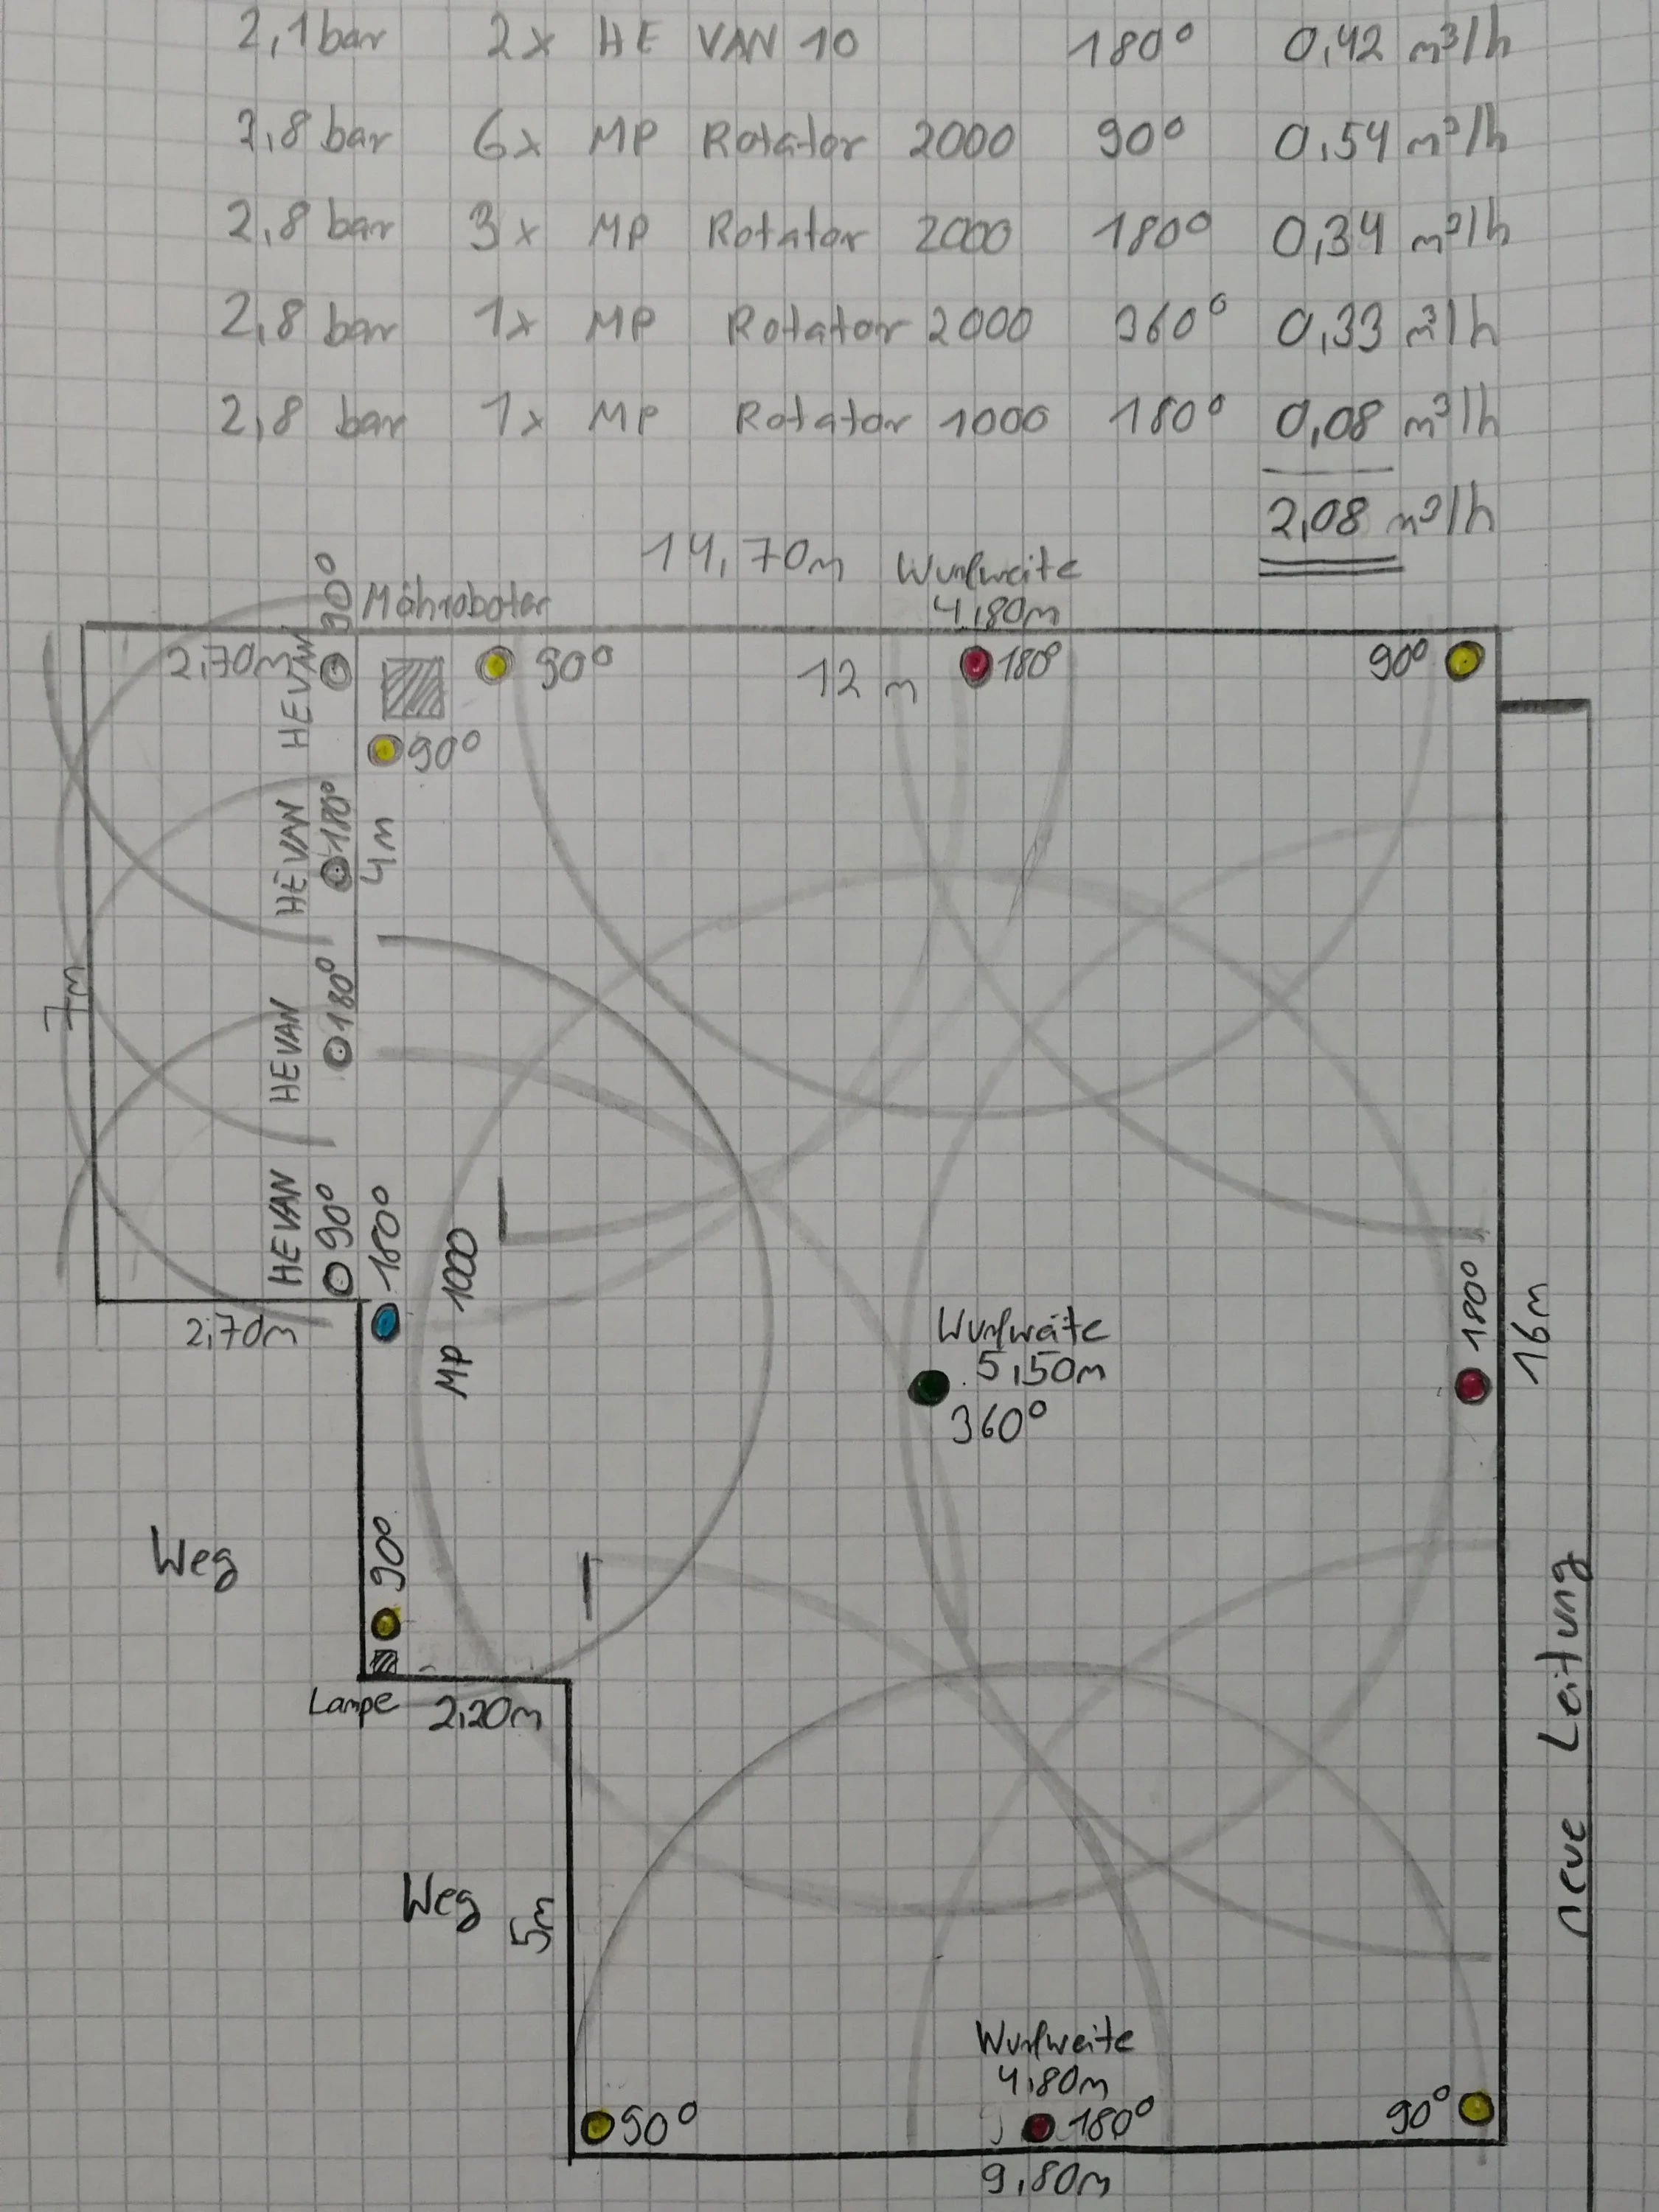 2,1bar 2x HE VAN 10 180° 0,42 m³/h
2,8 bar 6x MP Rotator 2000 90° 0,54 m³/h
2,8 bar 3x MP Rotator 2000 180° 0,34 m³/h
2,8 bar 1x MP Rotator 2000 360° 0,33 m³/h
2,8 bar 1x MP Rotator 1000 180° 0,08 m³/h
2,08 m³/h
14,70m
Wurfweite
4,80m
Mähroboter
90°
HEVAN
2,70m
90°
12 m
180°
90°
90°
HEVAN
180°
4m
7m
HEVAN
180°
HEVAN
90°
180°
MP 1000
2,70m
Wurfweite
5,50m
360°
180°
16m
Weg
90°
Lampe
2,20m
neue Leitung
Weg
5m
Wurfweite
4,80m
90°
180°
90°
9,80m